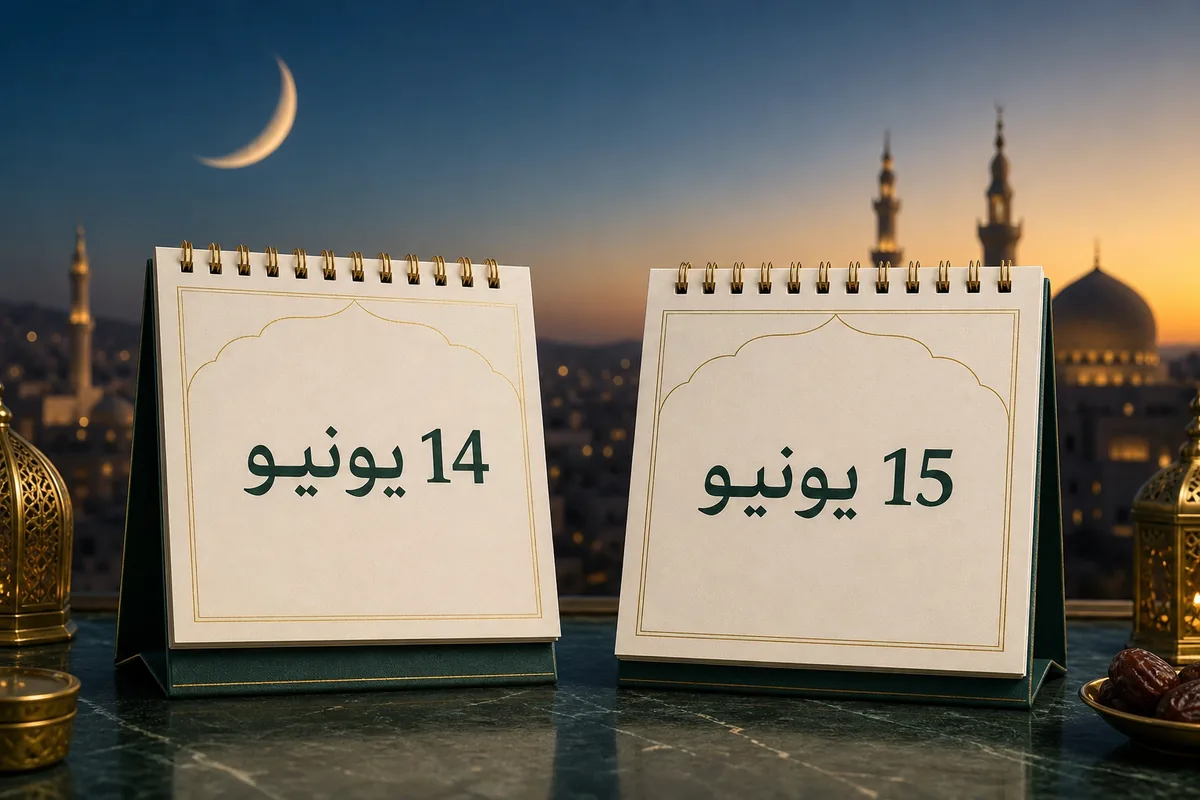 14 يونيو
15 يونيو